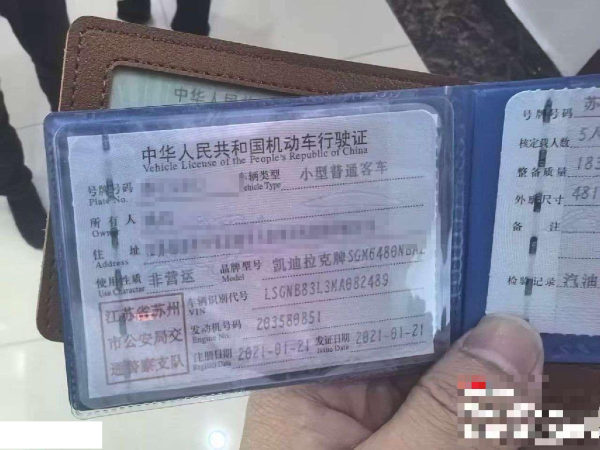 中华人民共和国机动车行驶证
Vehicle License of the People's Republic of China
号牌号码
Plate No.
车辆类型 小型普通客车
Vehicle Type
所有人
Owner
住址
Address
使用性质 非营运
Use Character
品牌型号 凯迪拉克牌SGM6480NBA2
Model
江苏省苏州
市公安局交
巡警察支队
车辆识别代号 LSGNB83L3MA082489
VIN
发动机号码 203580851
Engine No.
注册日期 2021-01-21
Register Date
发证日期 2021-01-21
Issue Date
中华人民
号牌号码 苏
核定载人数 5人
整备质量 183
外廓尺寸 481
备注
检验记录 汽油